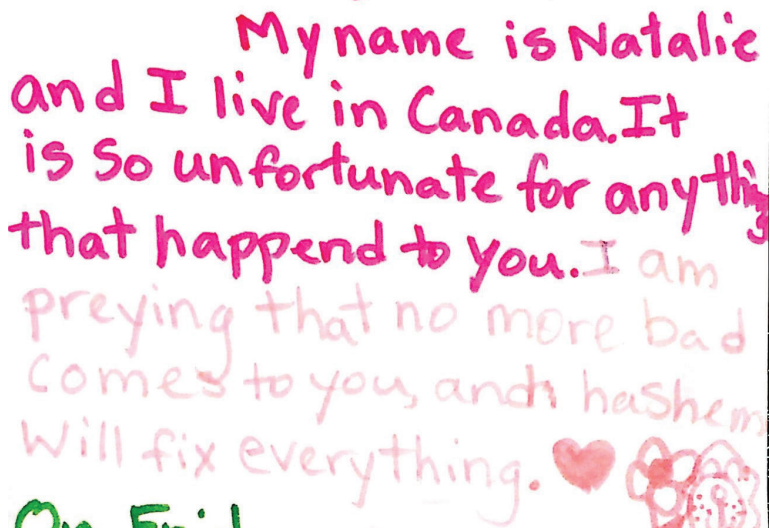 My name is Natalie
and I live in Canada. It
is so unfortunate for anything
that happend to you. I am
preying that no more bad
comes to you, and hashem
Will fix everything.
On